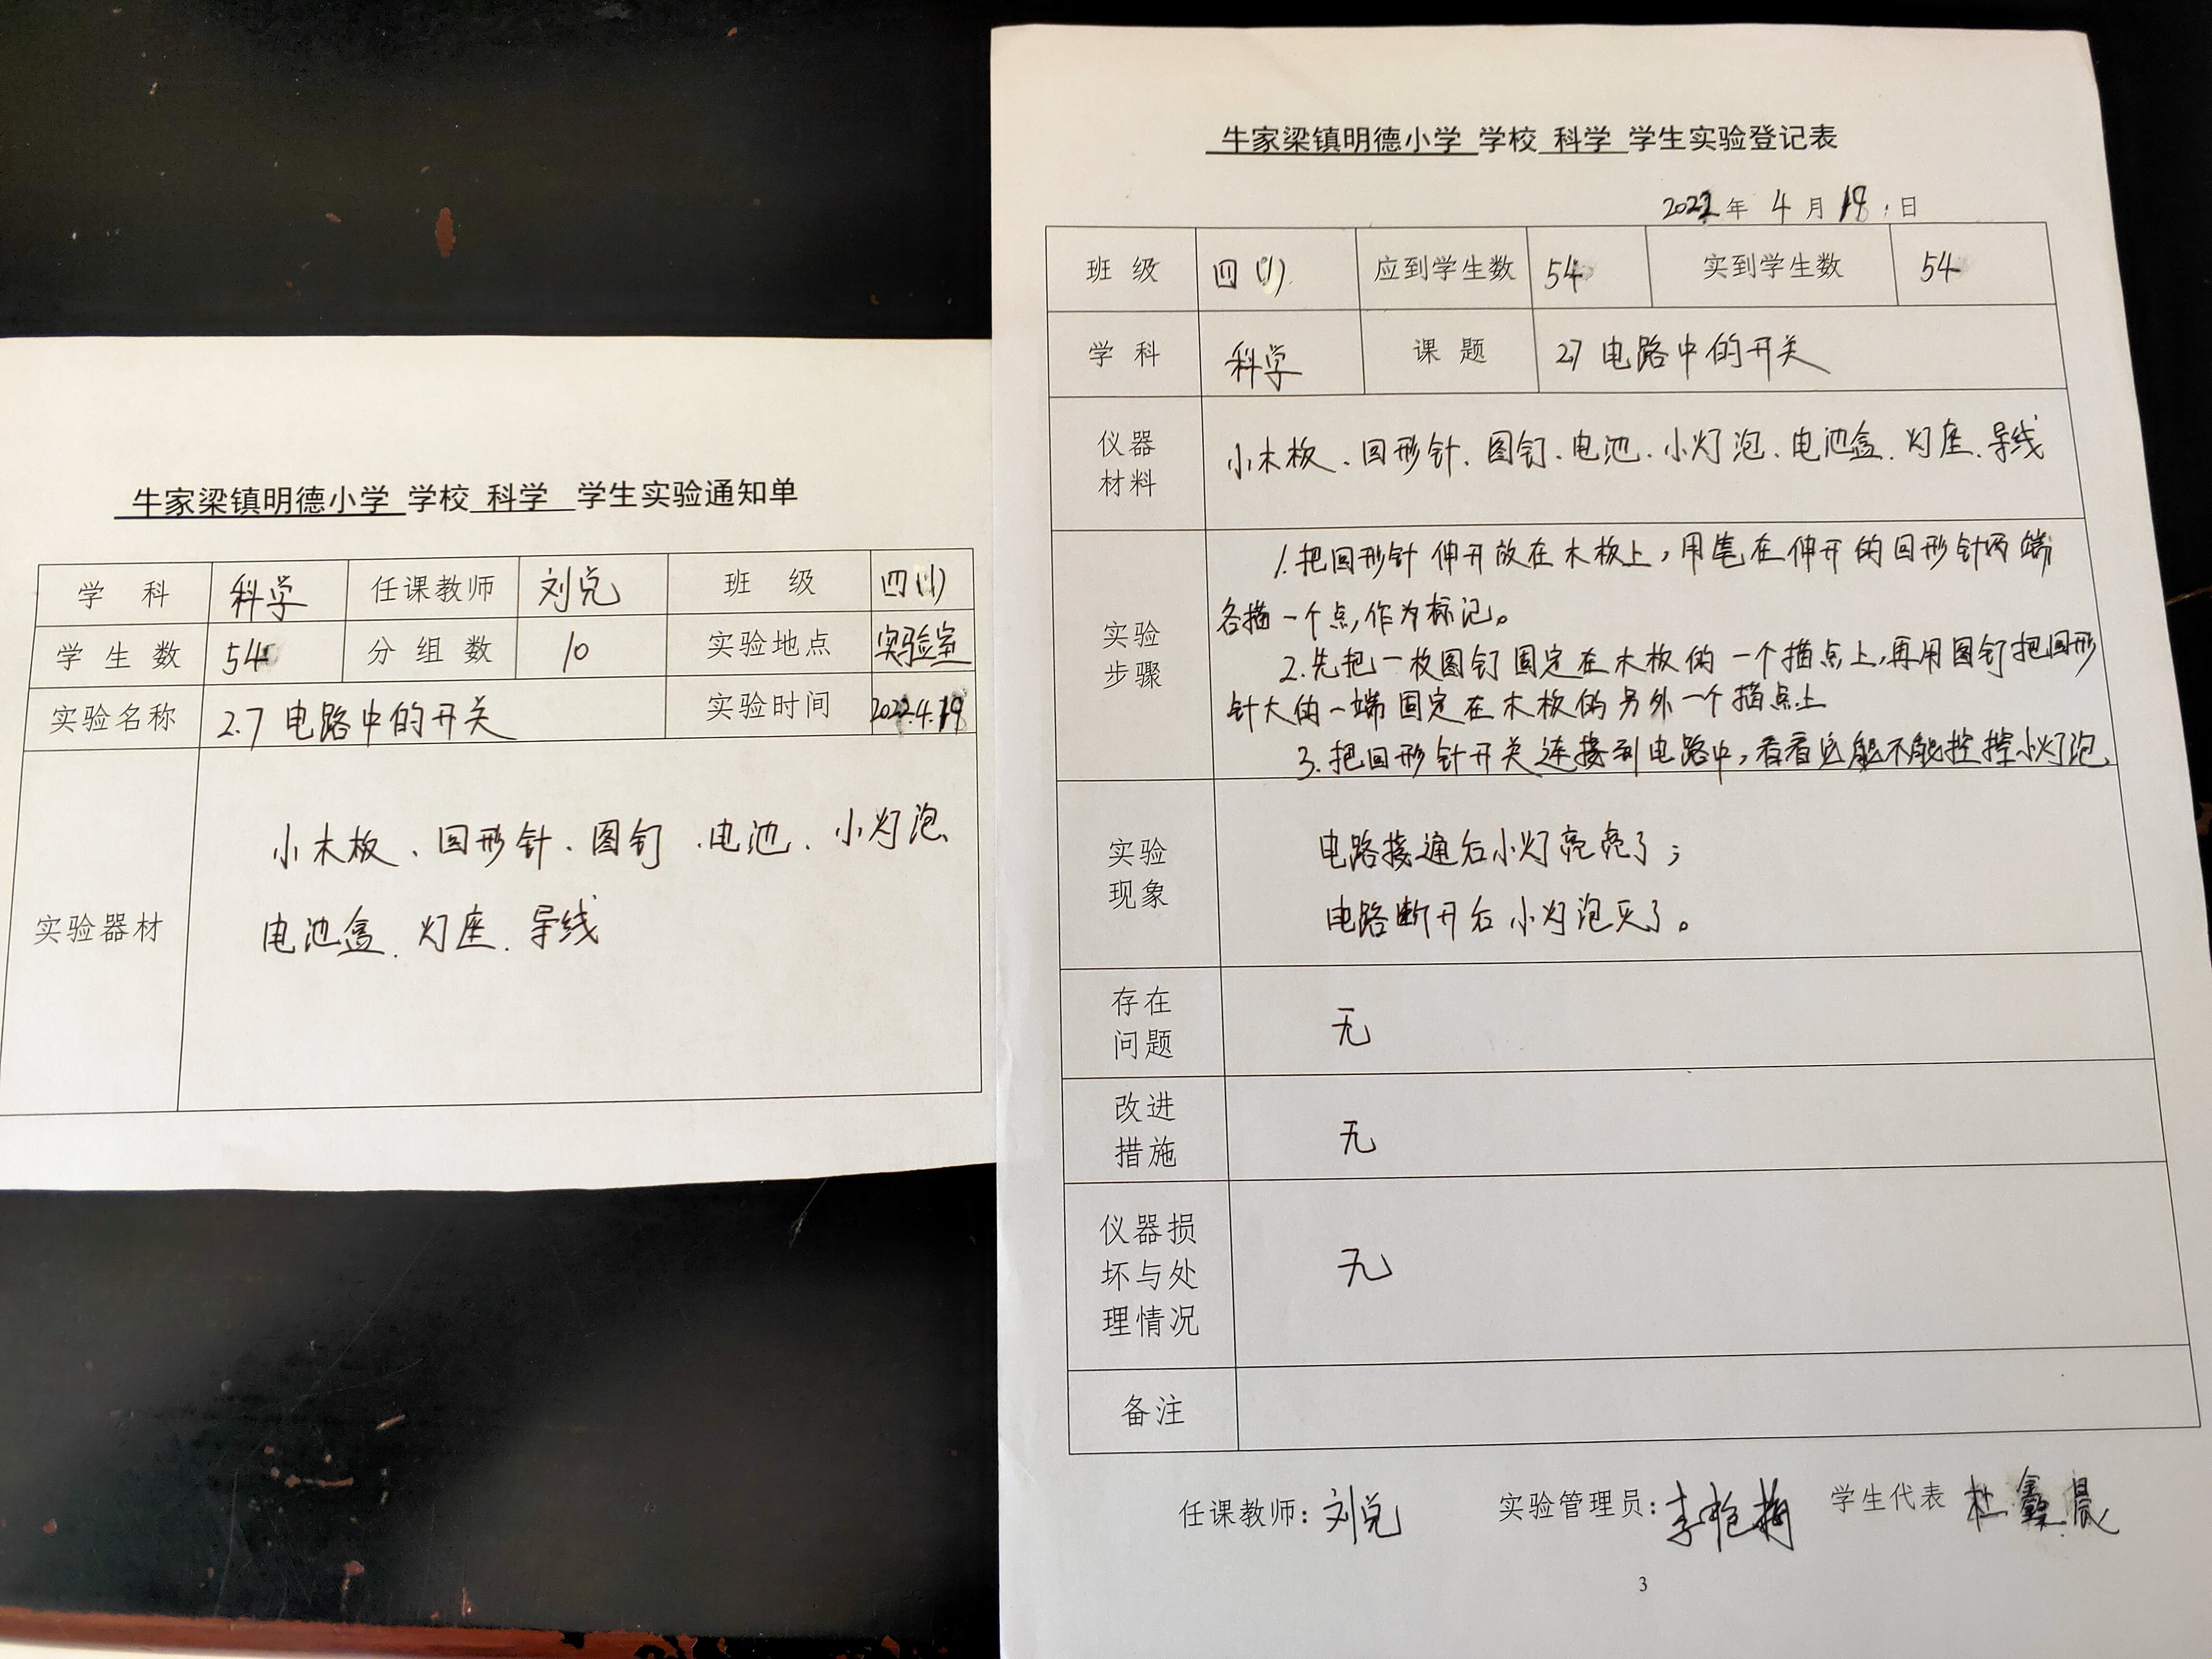 牛家梁镇明德小学 学校 科学 学生实验通知单
学 科 科学 任课教师 刘兑 班 级 四(1)
学 生 数 54 分 组 数 10 实验地点 实验室
实验名称 2.7 电路中的开关 实验时间 2022.4.19
实验器材
小木板、回形针、图钉、电池、小灯泡、
电池盒、灯座、导线
牛家梁镇明德小学 学校 科学 学生实验登记表
2022年 4 月 19 日
班 级 四(1) 应到学生数 54 实到学生数 54
学 科 科学 课 题 2.7 电路中的开关
仪器
材料
小木板、回形针、图钉、电池、小灯泡、电池盒、灯座、导线
实验
步骤
1.把回形针伸开放在木板上,用笔在伸开的回形针两端
各描一个点,作为标记。
2.先把一枚图钉固定在木板的一个描点上,再用图钉把回形
针大的一端固定在木板的另外一个描点上
3.把回形针开关连接到电路中,看看它能不能控控小灯泡
实验
现象
电路接通后小灯亮亮了;
电路断开后小灯泡灭了。
存在
问题
无
改进
措施
无
仪器损
坏与处
理情况
无
备注
任课教师: 刘兑 实验管理员: 李艳梅 学生代表 杜鑫晨
3